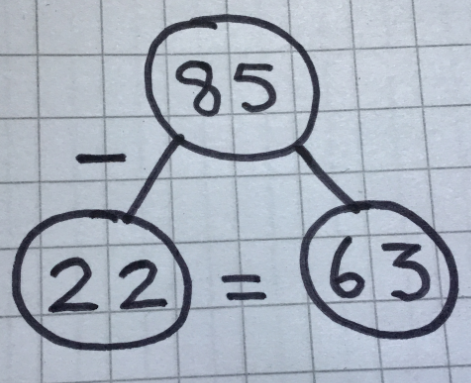 85
−
22 = 63